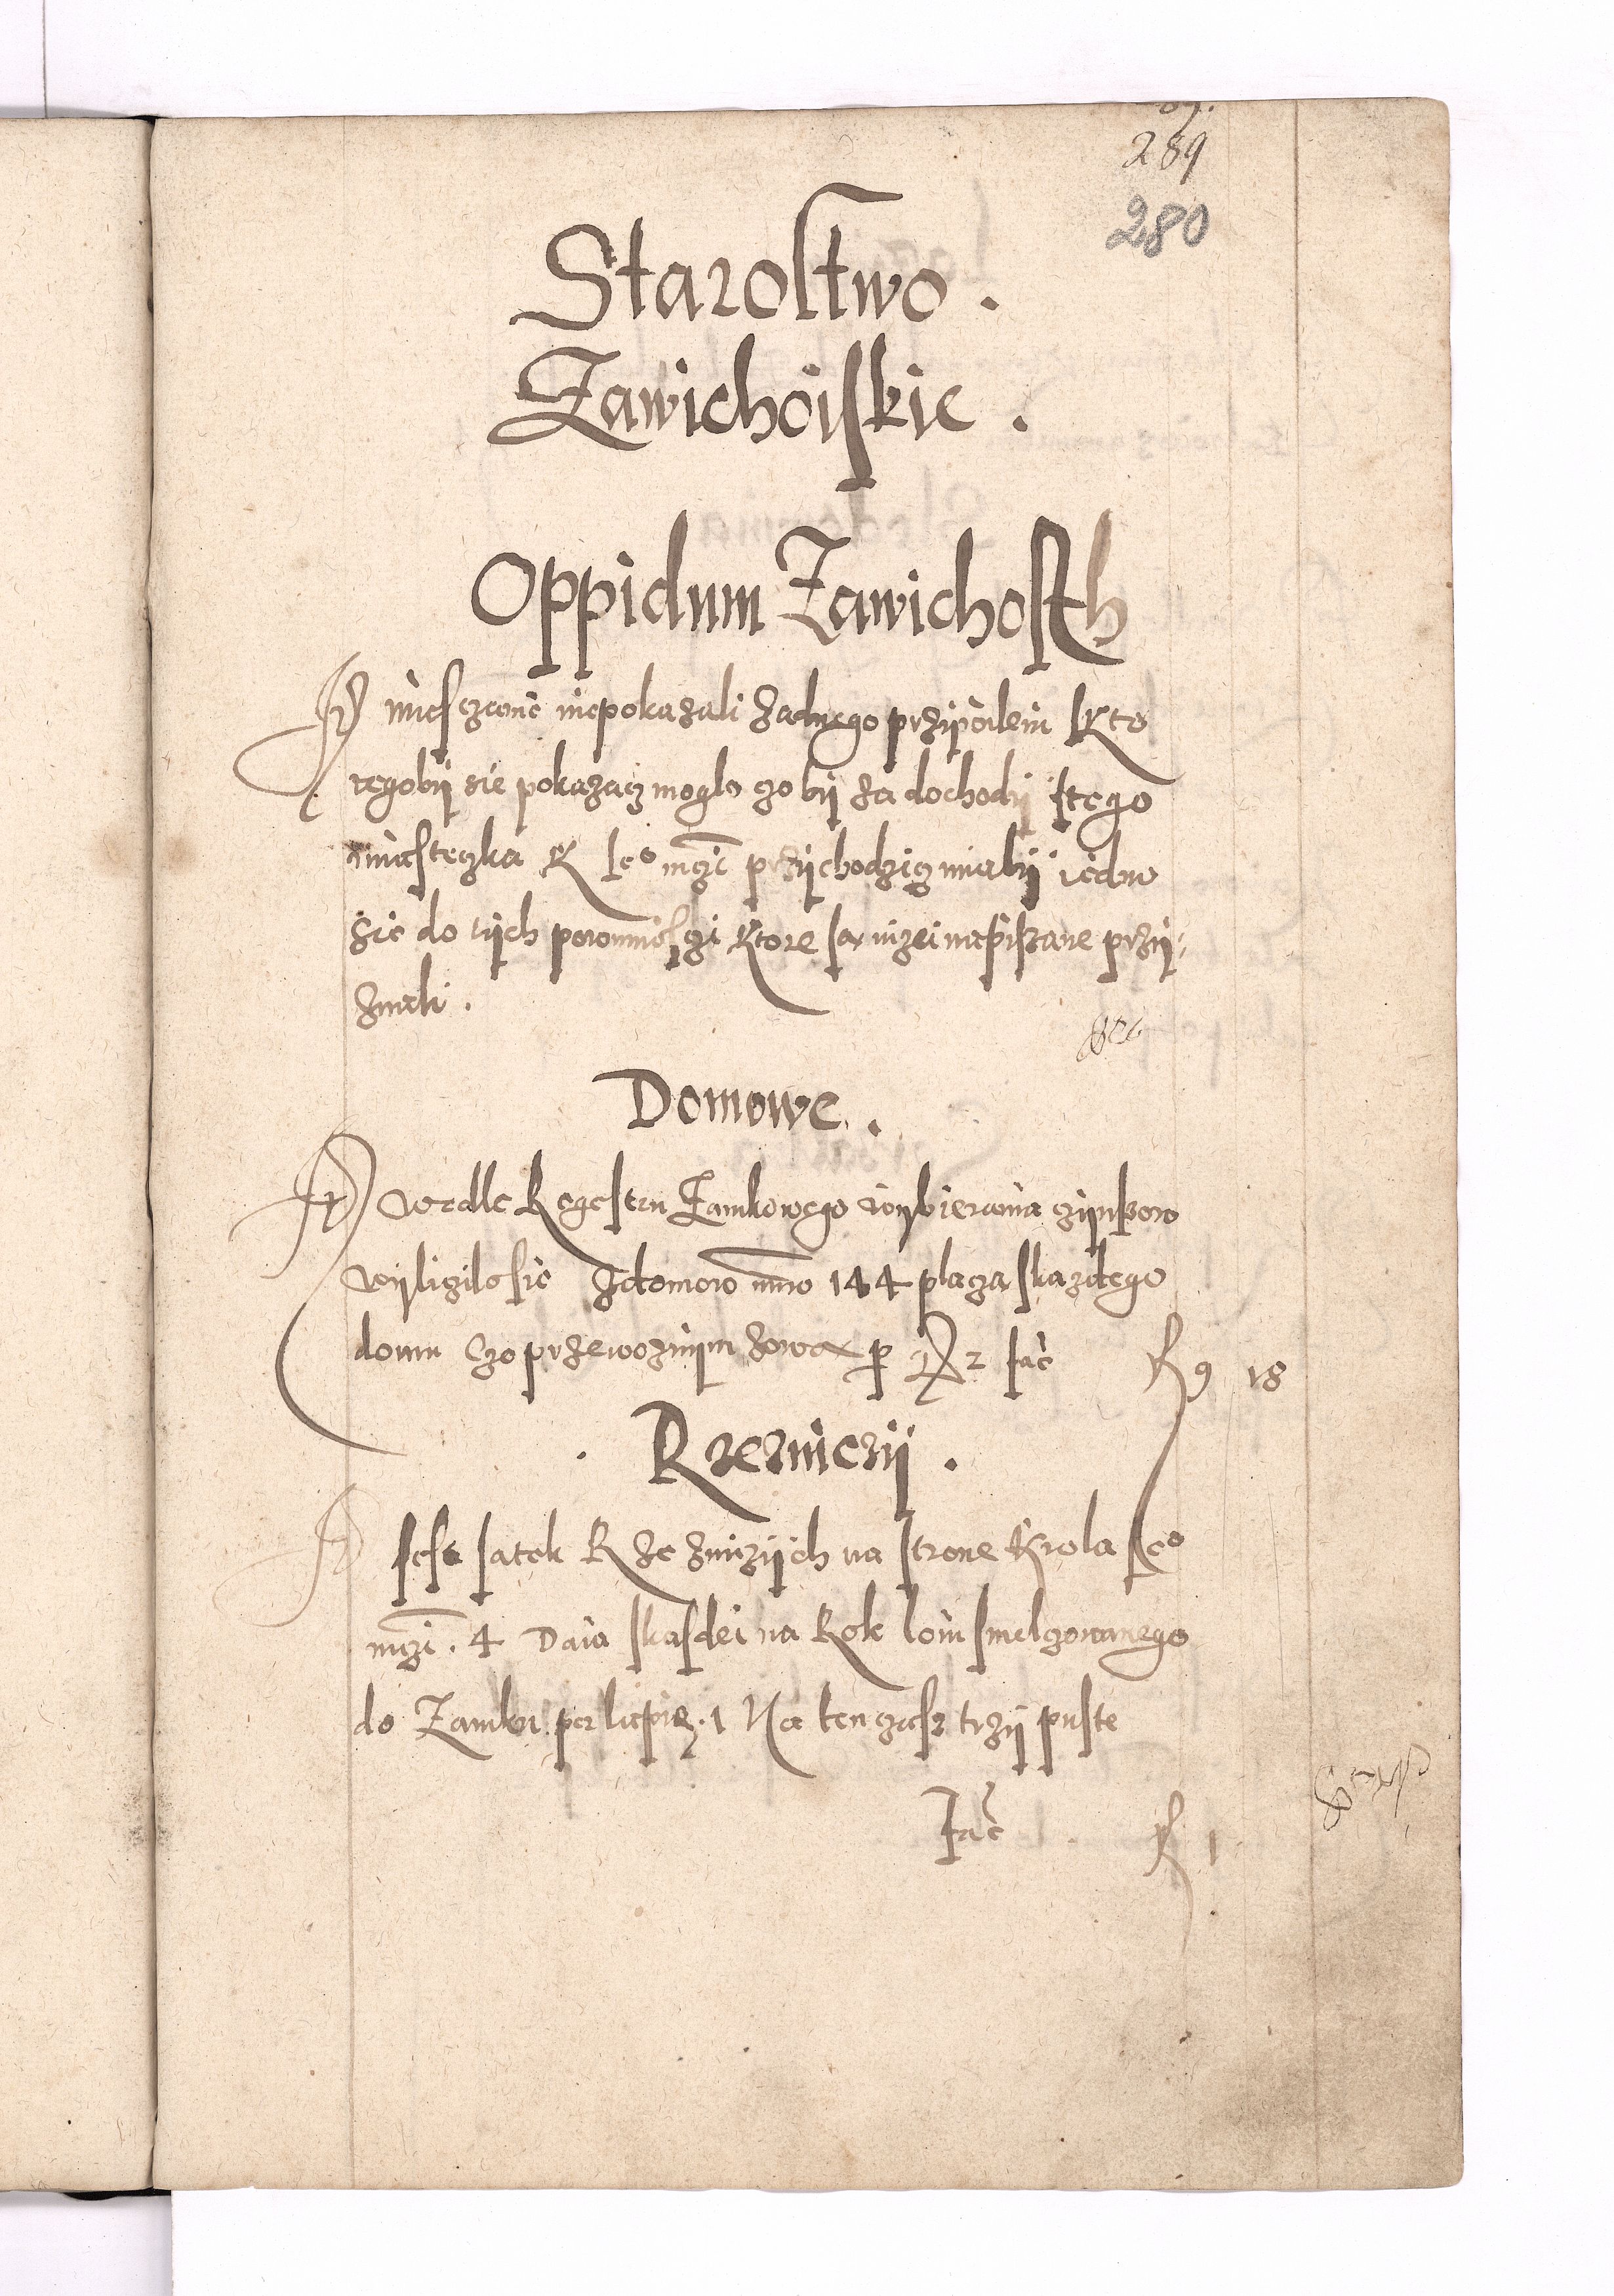 289
280
Starostwo .
Zawichoiskie .
Oppidum Zawichosth
It miesczanie niepokazali zadnego przijwileiu Kto
regobij sie pokazacz moglo czo bij za dochodij stego
miasteczka K Jeo mczi przijchodzicz mialij iedno
sie do tijch powinnosczi Ktore sa nizei napiszane przij=
znali .
Domowe .
It wedle Regestru Zamkowego wijbierania czijnszow
wijliczilo sie zdomow nuo 144 placza skazdego
domu Czo przewoznijm zowa p 2 fac R 9 18
. Rzezniczij .
It jest jatek Rzezniczijch na strone Krola Jeo
mczi . 4 Daia skasdei na Rok loiu smelczowanego
do Zamku per lapide . 1 Na ten czasz trzij puste
Fac R 1